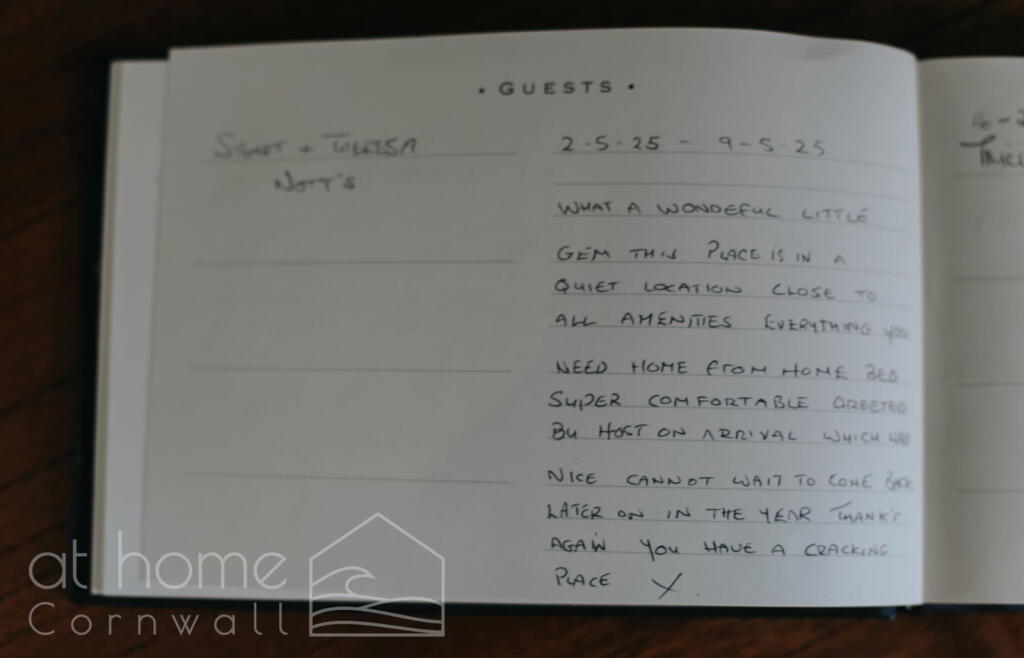 • GUESTS •
+ THERESA
NOTT'S
2-5-25 - 9-5-25
WHAT A WONDEFUL LITTLE
GEM THIS PLACE IS IN A
QUIET LOCATION CLOSE TO
ALL AMENITIES EVERYTHING YOU
NEED HOME FROM HOME BED
SUPER COMFORTABLE GREETED
BY HOST ON ARRIVAL WHICH WAS
NICE CANNOT WAIT TO COME BACK
LATER ON IN THE YEAR THANK'S
AGAIN YOU HAVE A CRACKING
PLACE X.
at home
Cornwall